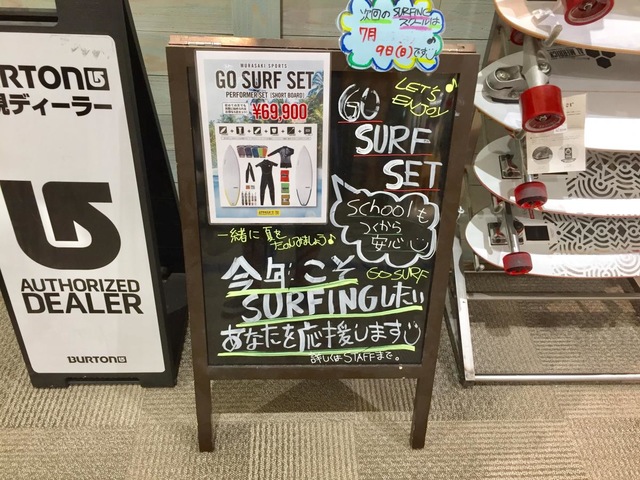 次回の SURFING
スクールは
7月
9日(日)です
MURASAKI SPORTS
GO SURF SET
PERFORMER SET (SHORT BOARD)
¥69,900
LET'S
ENJOY
GO
SURF
SET
schoolも
つくから
安心
GO SURF
一緒に夏を
たのしみましょう♪
今年こそ
SURFINGしたい
あなたを応援します
詳しくはSTAFFまで。
BURTON
規ディーラー
AUTHORIZED
DEALER
BURTON